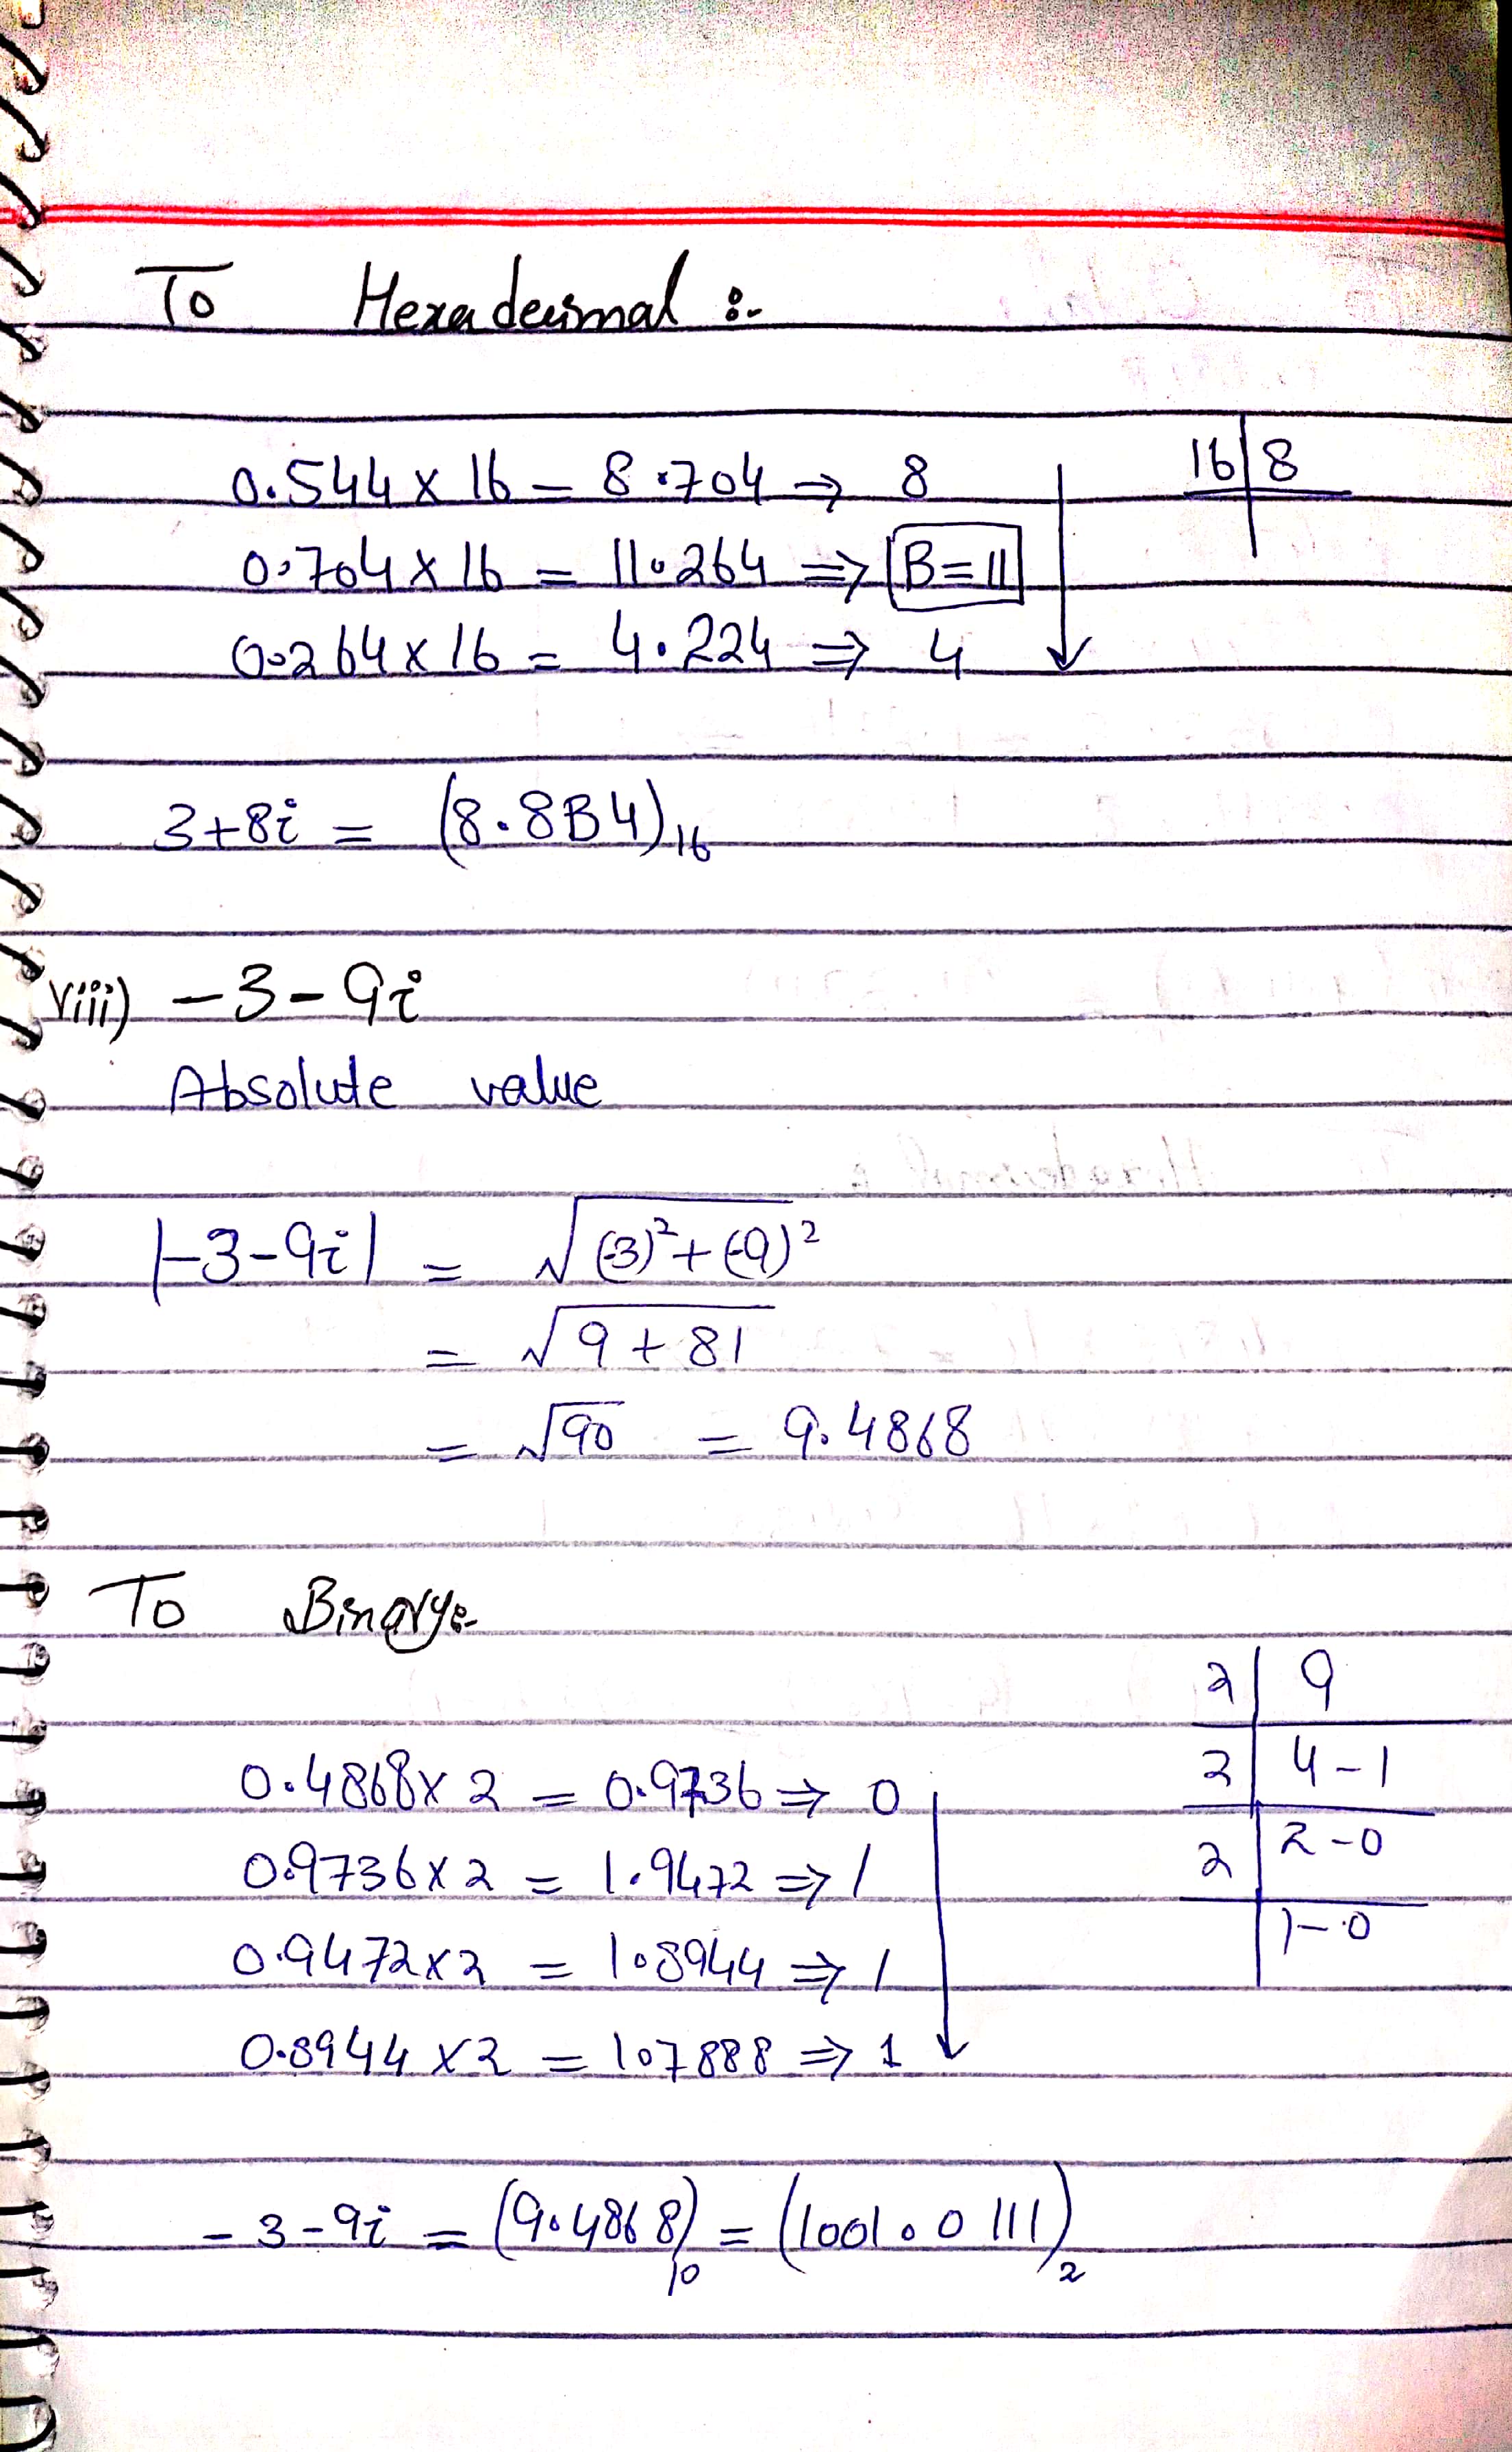 To Hexadecimal :-
0.544 x 16 = 8.704 ⇒ 8
16 8
0.704 x 16 = 11.264 ⇒ B=11
0.264 x 16 = 4.224 ⇒ 4
3+8i = (8.8B4)16
viii) -3-9i
Absolute value
|-3-9i| = √(-3)²+(-9)²
= √9+81
= √90 = 9.4868
To Binary:-
2 9
0.4868 x 2 = 0.9736 ⇒ 0
2 4-1
0.9736 x 2 = 1.9472 ⇒ 1
2 2-0
0.9472 x 2 = 1.8944 ⇒ 1
1-0
0.8944 x 2 = 1.7888 ⇒ 1
-3-9i = (9.4868)10 = (1001.0111)2